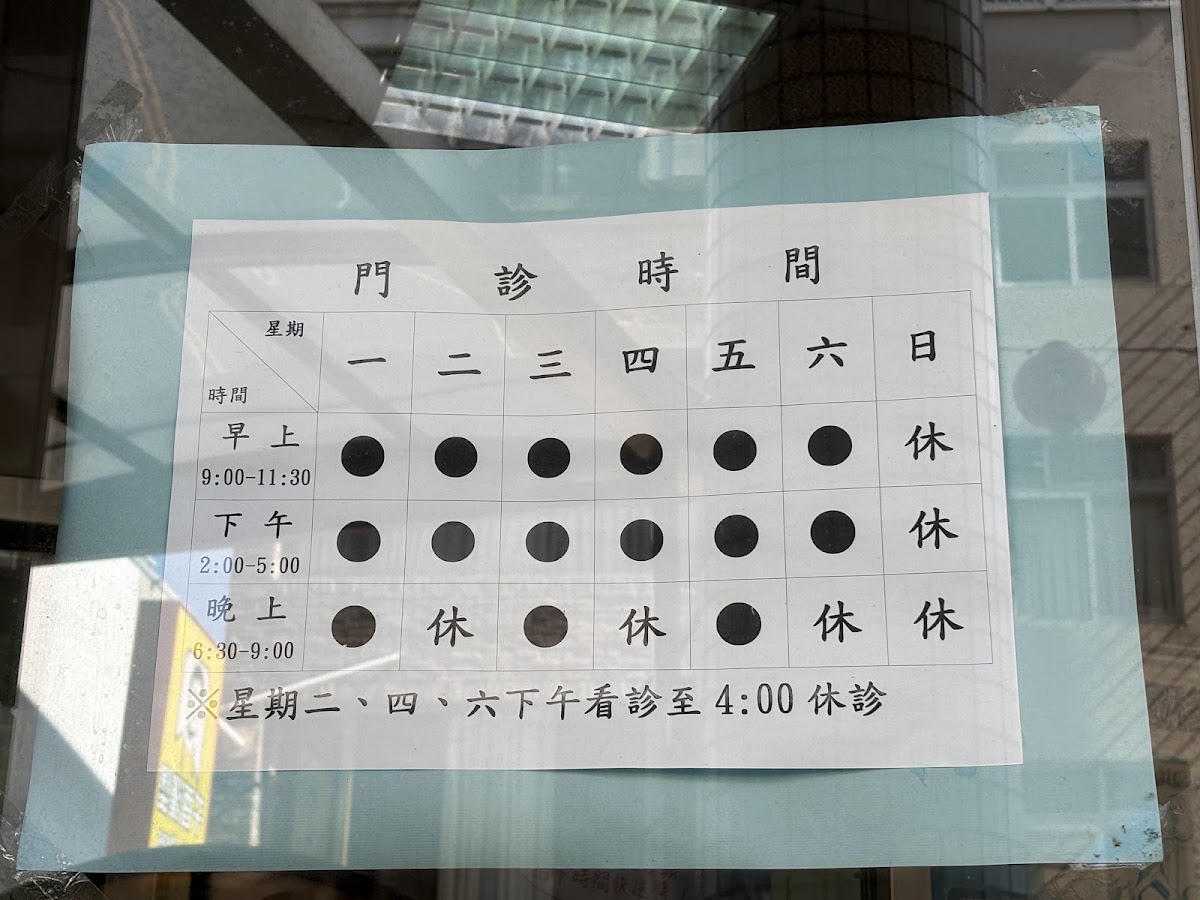 門診時間
星期 一 二 三 四 五 六 日
時間
早上 ● ● ● ● ● ● 休
9:00-11:30
下午 ● ● ● ● ● ● 休
2:00-5:00
晚上 ● 休 ● 休 ● 休 休
6:30-9:00
※星期二、四、六下午看診至4:00休診